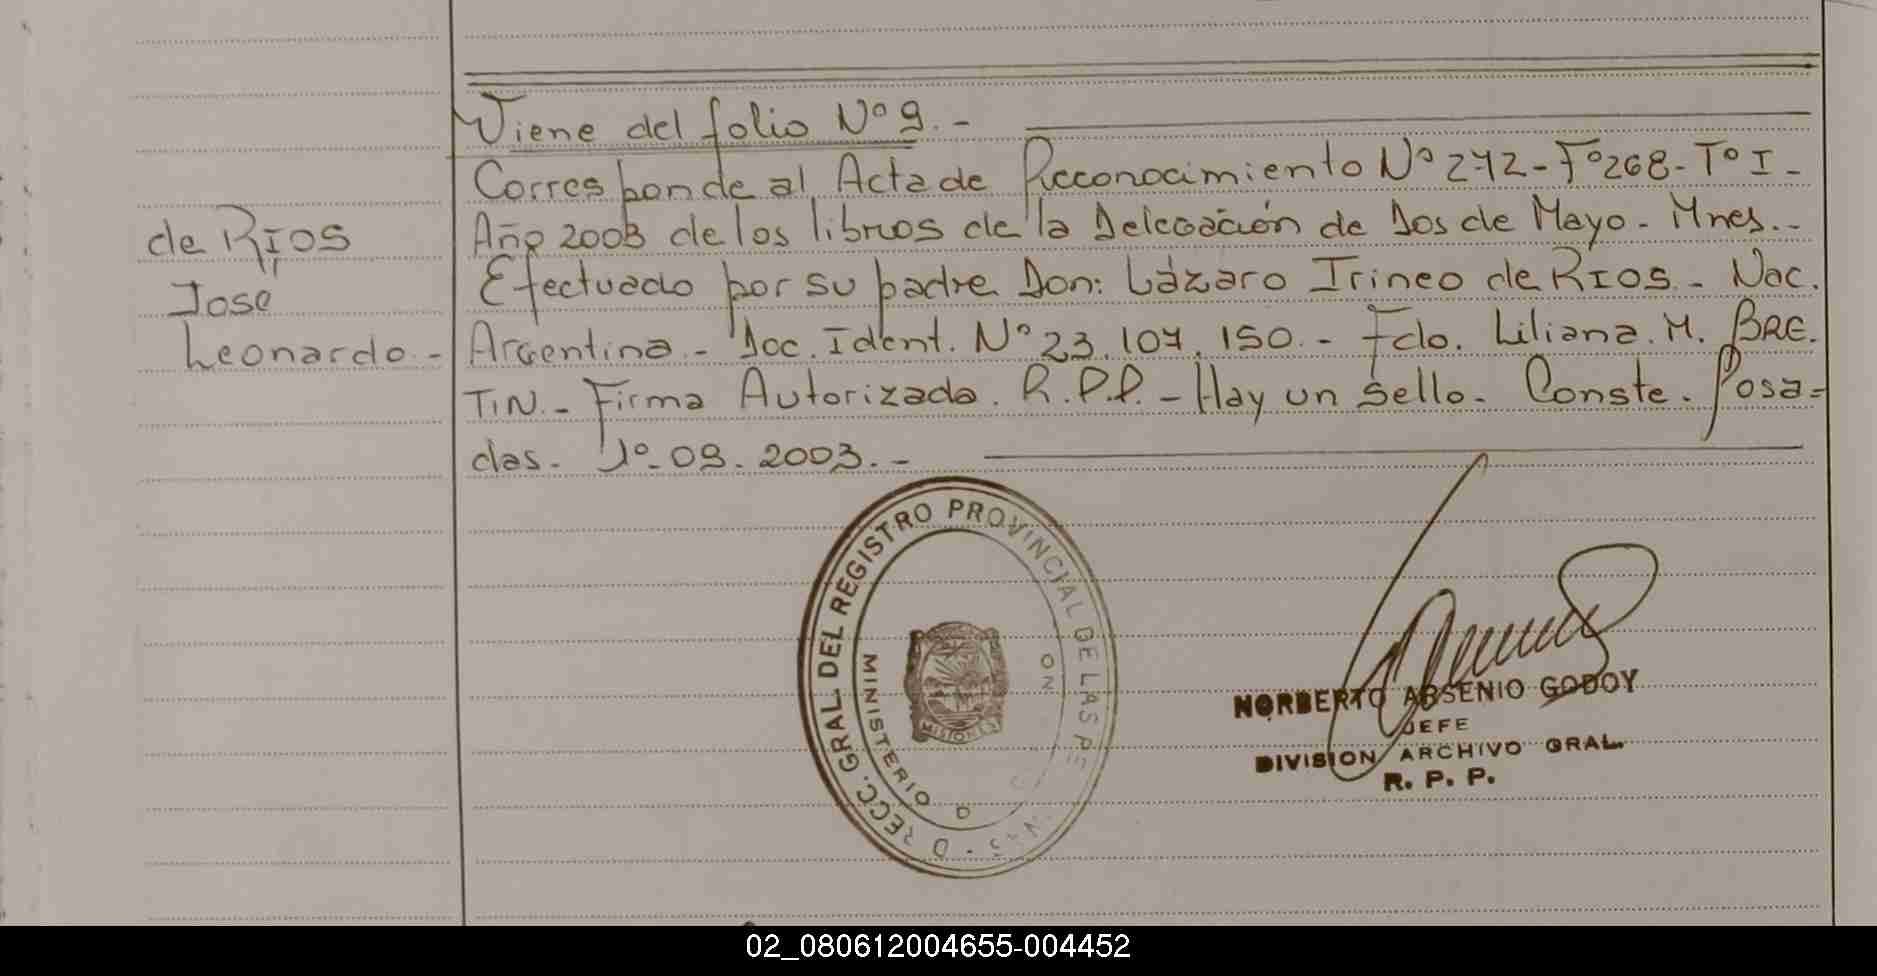 Viene del folio Nº 9.-
Corresponde al Acta de Reconocimiento Nº 272-Fº268-Tº I-
Año 2003 de los libros de la Delegación de Dos de Mayo - Mnes.-
Efectuado por su padre Don: Lázaro Irineo de RIOS - Nac.
Argentina.- Doc. Ident. Nº 23.107.150.- Fdo. Liliana. M. BRE.
TIN.- Firma Autorizada. R.P.P.- Hay un sello. Conste. Posa=
das. 1º-09.2003.-
de RIOS
José
Leonardo.-
DIRECC. GRAL. DEL REGISTRO PROVINCIAL DE LAS PE
MINISTERIO D
ON
MISIONES
NORBERTO ARSENIO GODOY
JEFE
DIVISION ARCHIVO GRAL.
R. P. P.
02_080612004655-004452